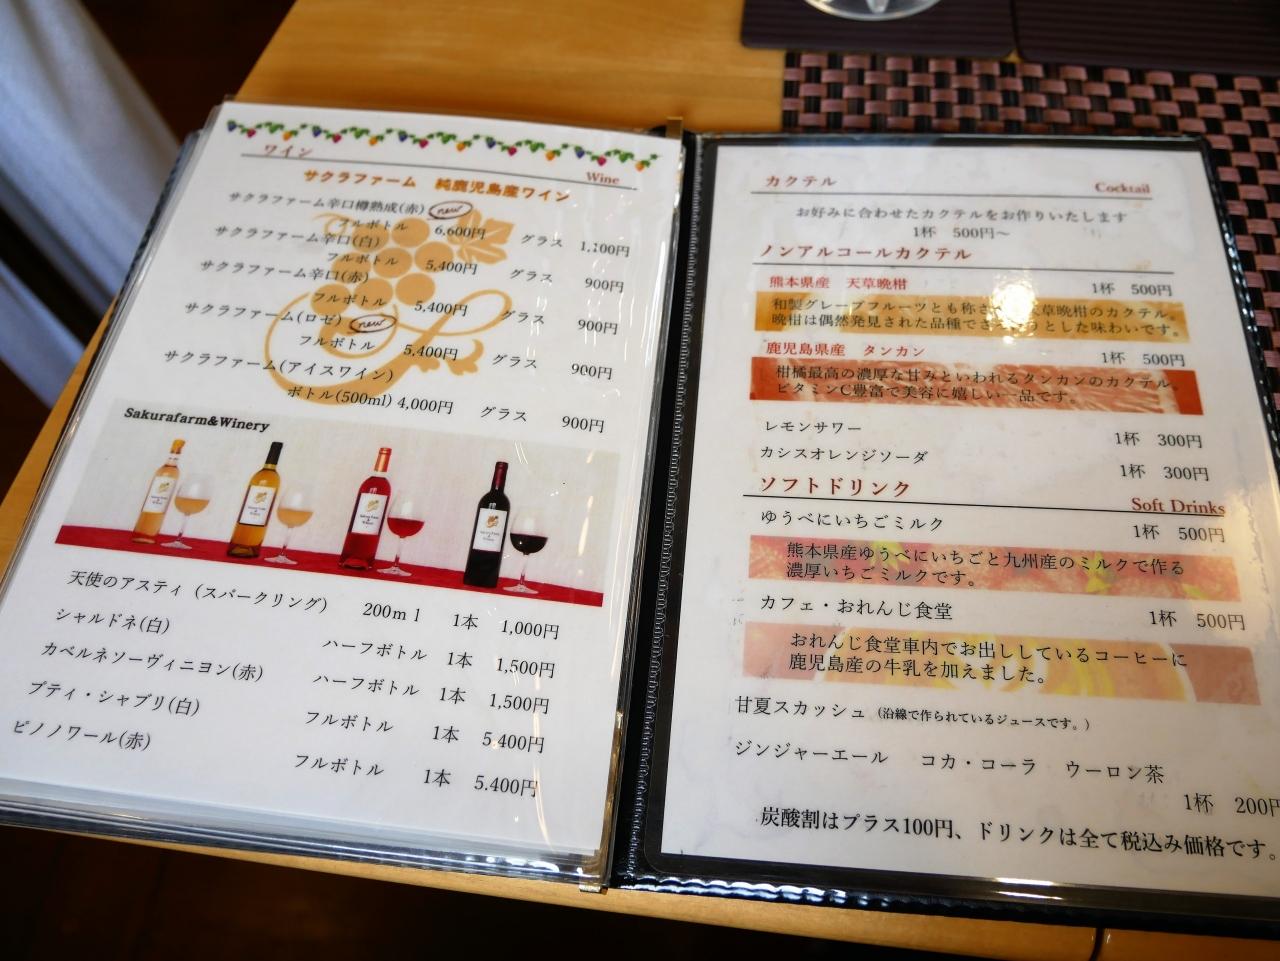 ワイン
Wine
サクラファーム 純鹿児島産ワイン
サクラファーム辛口樽熟成(赤) new
フルボトル 6,600円 グラス 1,100円
サクラファーム辛口(白)
フルボトル 5,400円 グラス 900円
サクラファーム辛口(赤)
フルボトル 5,400円 グラス 900円
サクラファーム(ロゼ) new
フルボトル 5,400円 グラス 900円
サクラファーム(アイスワイン)
ボトル(500ml) 4,000円 グラス 900円
Sakurafarm&Winery
天使のアスティ (スパークリング) 200ml 1本 1,000円
シャルドネ(白) ハーフボトル 1本 1,500円
カベルネソーヴィニヨン(赤) ハーフボトル 1本 1,500円
プティ・シャブリ(白) フルボトル 1本 5,400円
ピノノワール(赤) フルボトル 1本 5,400円
カクテル
Cocktail
お好みに合わせたカクテルをお作りいたします
1杯 500円～
ノンアルコールカクテル
熊本県産 天草晩柑 1杯 500円
和製グレープフルーツとも称さ 草晩柑のカクテル。
晩柑は偶然発見された品種でさ りとした味わいです。
鹿児島県産 タンカン 1杯 500円
柑橘最高の濃厚な甘みといわれるタンカンのカクテル。
ビタミンC豊富で美容に嬉しい一品です。
レモンサワー 1杯 300円
カシスオレンジソーダ 1杯 300円
ソフトドリンク
Soft Drinks
ゆうべにいちごミルク 1杯 500円
熊本県産ゆうべにいちごと九州産のミルクで作る
濃厚いちごミルクです。
カフェ・おれんじ食堂 1杯 500円
おれんじ食堂車内でお出ししているコーヒーに
鹿児島産の牛乳を加えました。
甘夏スカッシュ (沿線で作られているジュースです。)
ジンジャーエール コカ・コーラ ウーロン茶
1杯 200円
炭酸割はプラス100円、ドリンクは全て税込み価格です。